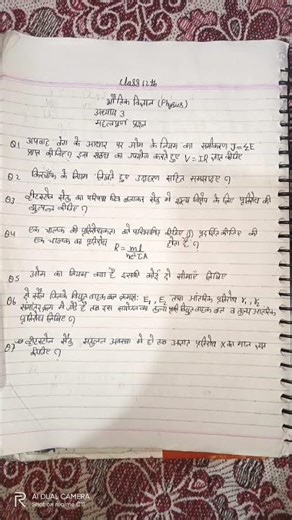 Class 12th
भौतिक विज्ञान (Physics)
अध्याय 3
महत्वपूर्ण प्रश्न
Q1 अपवाह वेग के आधार पर ओम के नियम का समीकरण J=σE
प्राप्त कीजिए। इस संबंध का उपयोग करते हुए V=IR ज्ञात कीजिए
Q2 किरचॉफ के नियम लिखो उदाहरण सहित समझाइए ?
Q3 व्हीटस्टोन सेतु का परिपथ चित्र बनाकर सेतु में शून्य विक्षेप के लिए प्रतिरोध की
व्युत्पत्ति कीजिए ?
Q4 एक चालक की प्रतिरोधकता को परिभाषित कीजिए ? प्रदर्शित कीजिए की
एक चालक का प्रतिरोध R = ml / ne²τA होता है ?
Q5 ओम का नियम क्या है इसकी कोई दो सीमाएं लिखिए
Q6 दो सेल जिनके विद्युत वाहक बल क्रमशः E₁, E₂ तथा आंतरिक प्रतिरोध r₁, r₂
में जोड़े हैं तब इस संयोजन का तुल्य विद्युत वाहक बल व तुल्य आंतरिक
प्रतिरोध लिखिए ?
Q7 व्हीटस्टोन सेतु संतुलन अवस्था में हो तब अज्ञात प्रतिरोध X का मान ज्ञात
कीजिए ?
AI DUAL CAMERA
Shot on realme C11